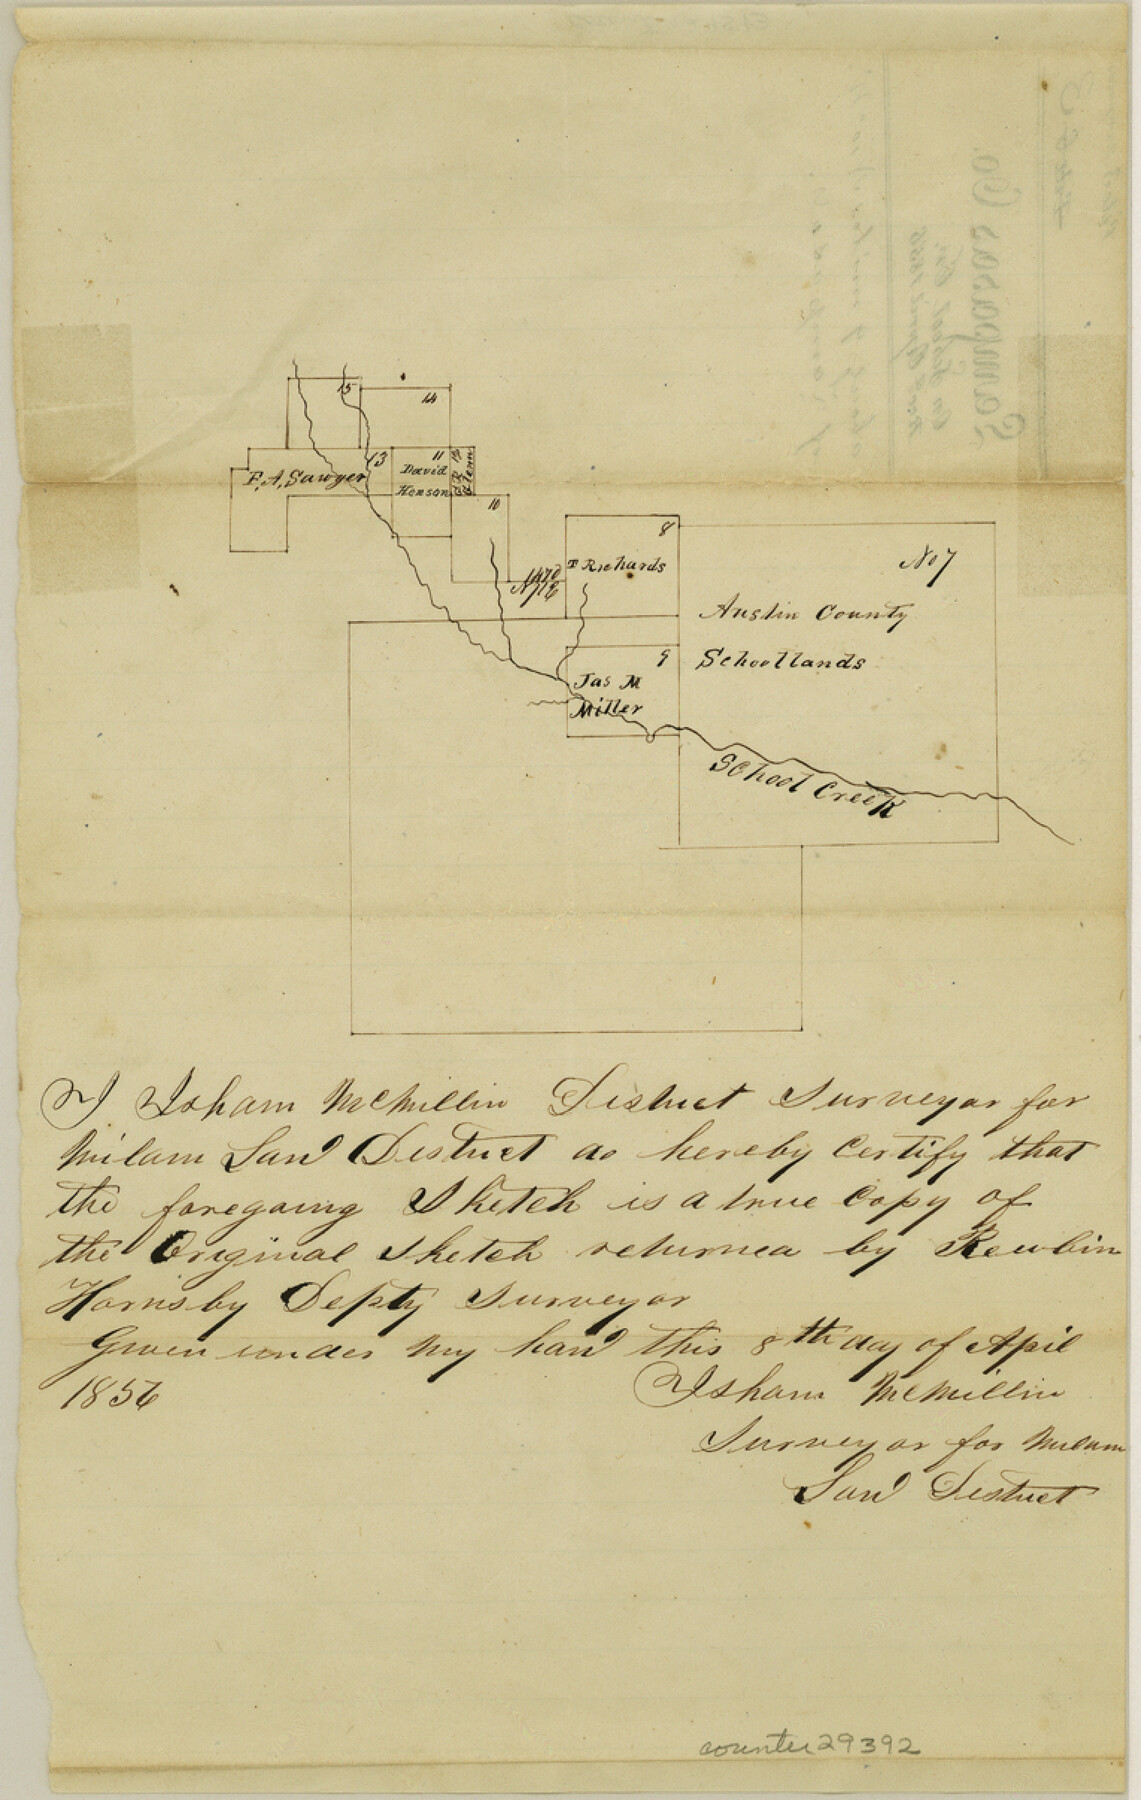 15
14
13
11
12
F. A. Sawyer
David
Henson
Glenn
10
8
T Richards
No 7
Austin County
9
Schoollands
Jas M
Miller
School Creek
I Isham McMillin District Surveyor for
Milam Land District do hereby Certify that
the foregoing Sketch is a true Copy of
the Original Sketch returned by Rewbin
Hornsby Depty Surveyor
Given under my hand this 8th day of April
1856
Isham McMillin
Surveyor for Milam
Land District
counter 29392
Lampasas Co.